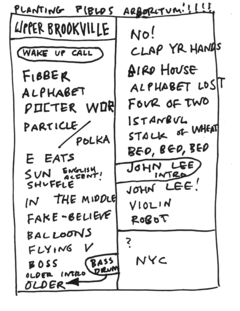 PLANTING FIELDS ARBORETUM!!!!
UPPER BROOKVILLE
WAKE UP CALL
FIBBER
ALPHABET
DOCTER WOR
PARTICLE /
POLKA
E EATS
SUN ENGLISH ACCENT!
SHUFFLE
IN THE MIDDLE
FAKE-BELIEVE
BALLOONS
FLYING V
BOSS
BASS DRUM
OLDER INTRO
OLDER
NO!
CLAP YR HANDS
BIRD HOUSE
ALPHABET LOST
FOUR OF TWO
ISTANBUL
STALK OF WHEAT
BED, BED, BED
JOHN LEE
INTRO
JOHN LEE!
VIOLIN
ROBOT
?
NYC